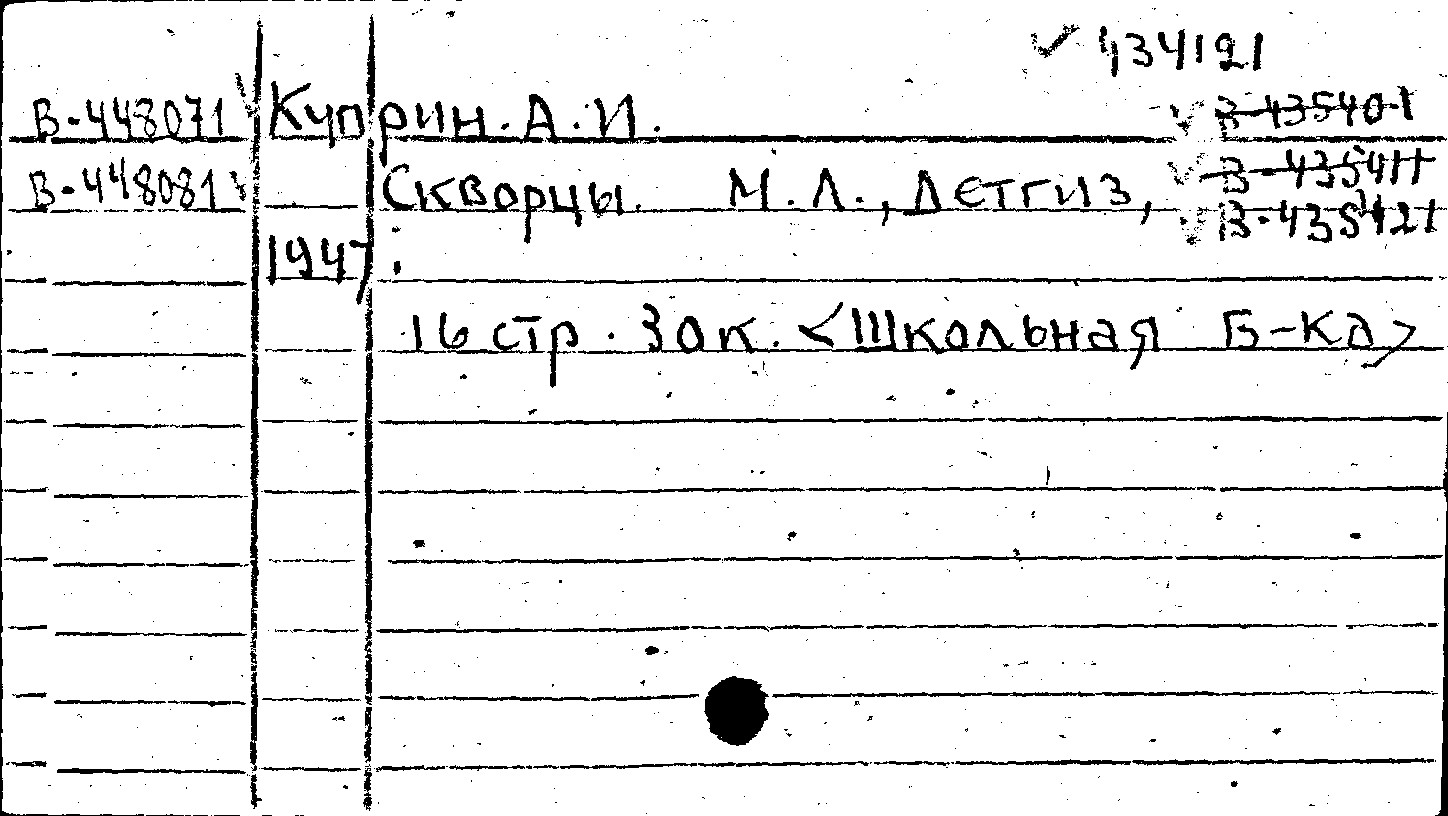 ✓ 434121
В-448071 ✓ Куприн. А. И. ✓ В-435401
В-448081 ✓ Скворцы. М. Л., Детгиз, ✓ В-435411
1947. ✓ В-435421
16 стр. 30к. <Школьная Б-ка>